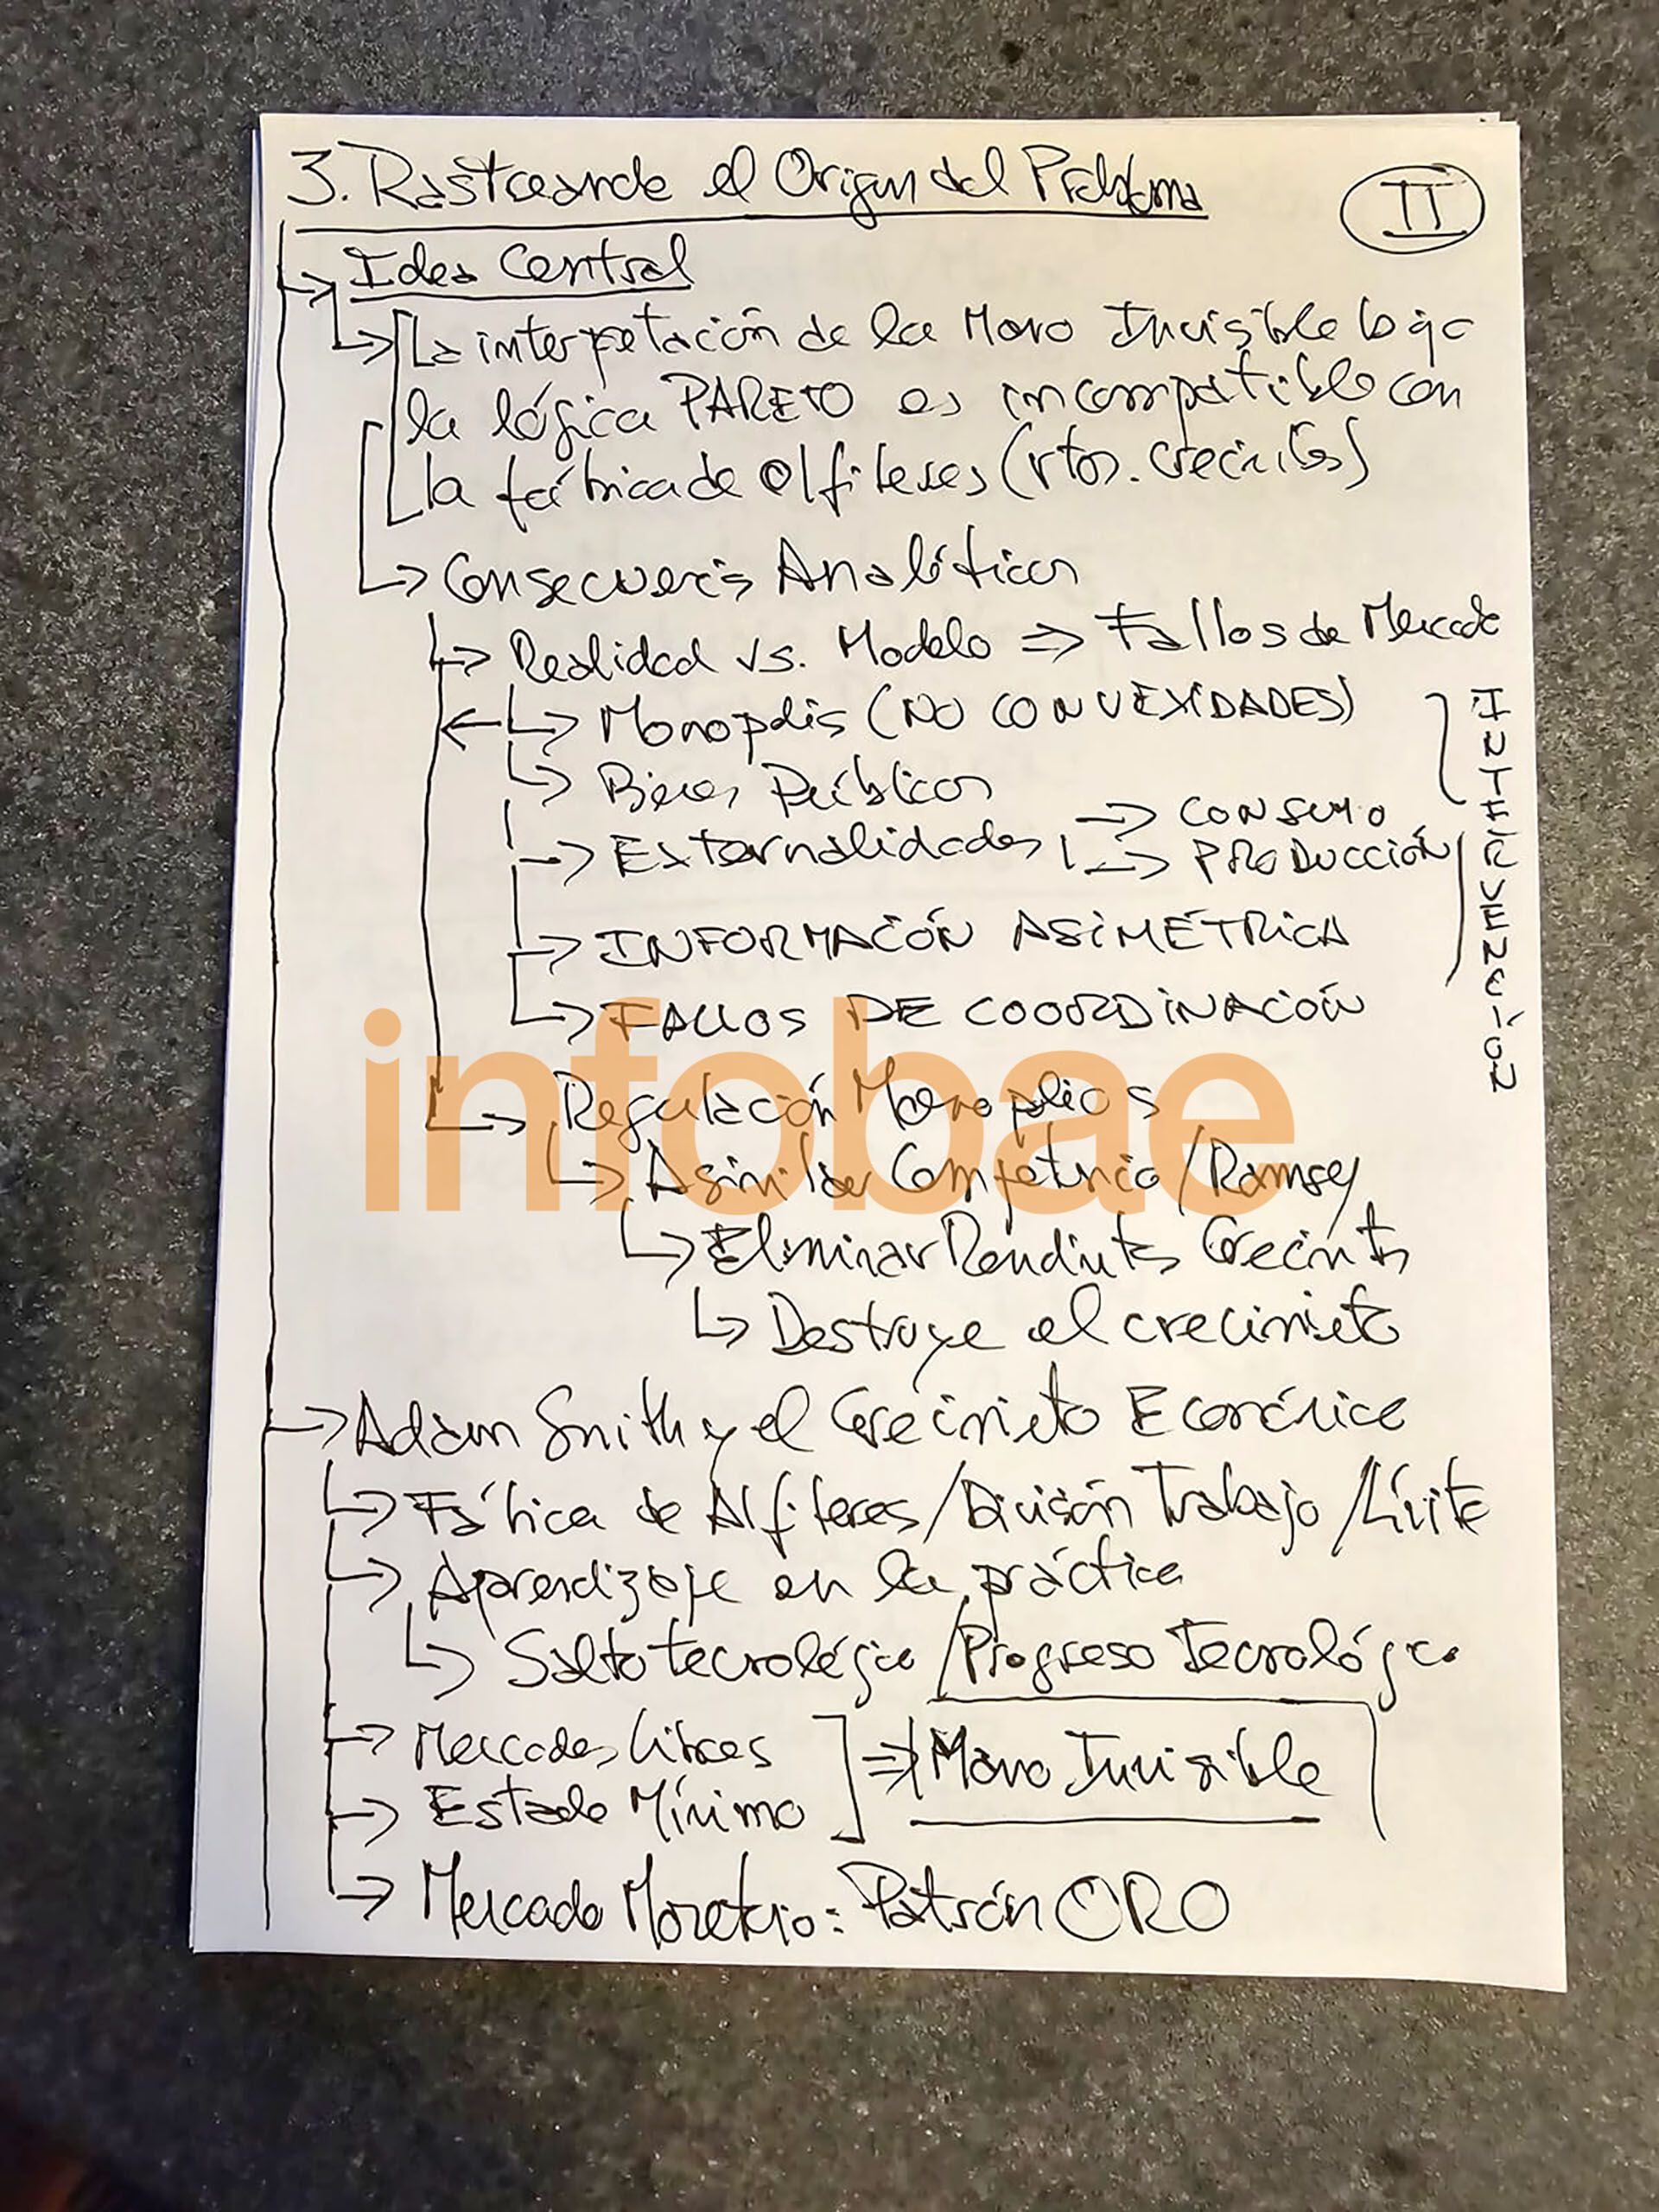 3. Rastreando el Origen del Problema
II
Idea Central
La interpretación de la Mano Invisible bajo
la lógica PARETO es incompatible con
la fábrica de alfileres (rtos. crecientes)
Consecuencias Analíticas
Realidad vs. Modelo ⇒ Fallos de Mercado
Monopolios (NO CONVEXIDADES)
Bienes Públicos
Externalidades → CONSUMO
→ PRODUCCIÓN
INFORMACIÓN ASIMÉTRICA
FALLOS DE COORDINACIÓN
INTERVENCIÓN
Regulación Monopolios
Asimilar Competencia / Ramsey
Eliminar Rendimientos Crecientes
Destruye el crecimiento
Adam Smith y el Crecimiento Económico
Fábrica de Alfileres / División Trabajo / Límite
Aprendizaje en la práctica
Salto tecnológico / Progreso Tecnológico
Mercados Libres
Estado Mínimo
⇒ Mano Invisible
Mercado Monetario: Patrón ORO
infobae